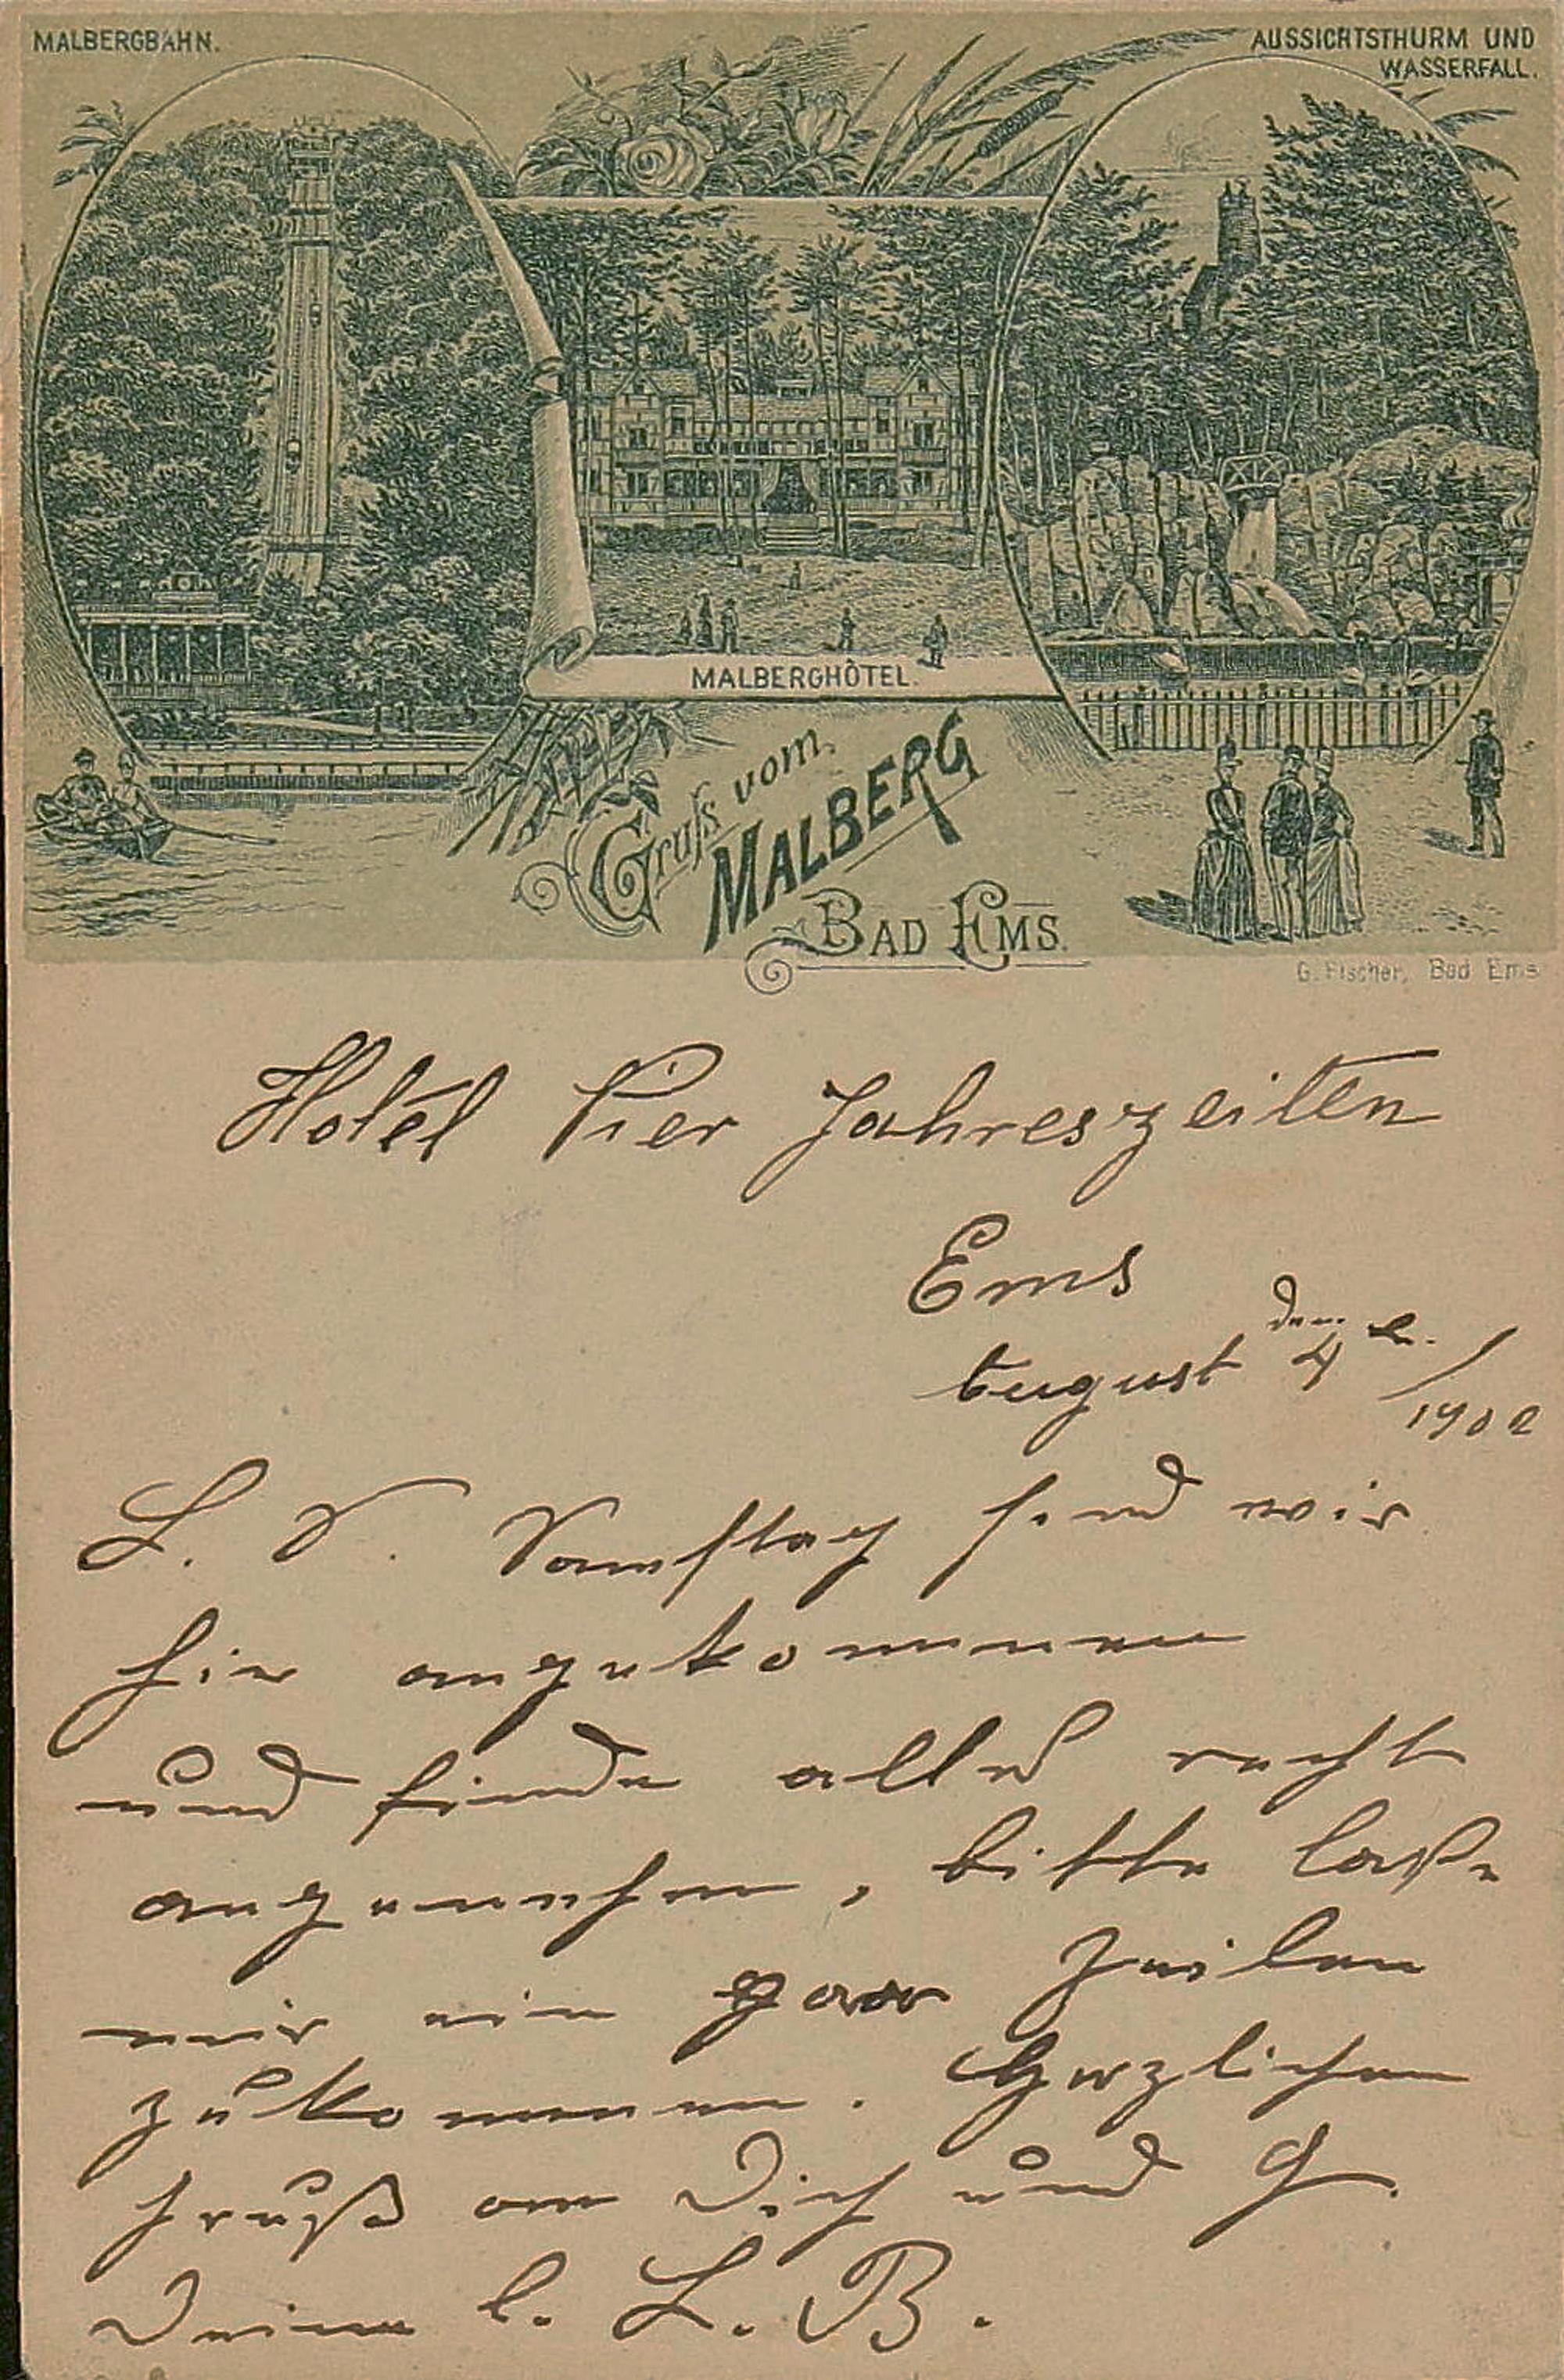 MALBERGBAHN.
AUSSICHTSTHURM UND
WASSERFALL.
MALBERGHÔTEL.
Gruſs vom
MALBERG
BAD EMS.
G. Fischer, Bad Ems
Hotel Vier Jahreszeiten
Ems
den
August 4 / 1902
L. S. Samstag sind wir
hier angekommen
und finde alles recht
angenehm, bitte laße
mir ein paar Zeilen
zukommen. Herzlichen
Gruß an Dich und G.
Deine l. L. B.